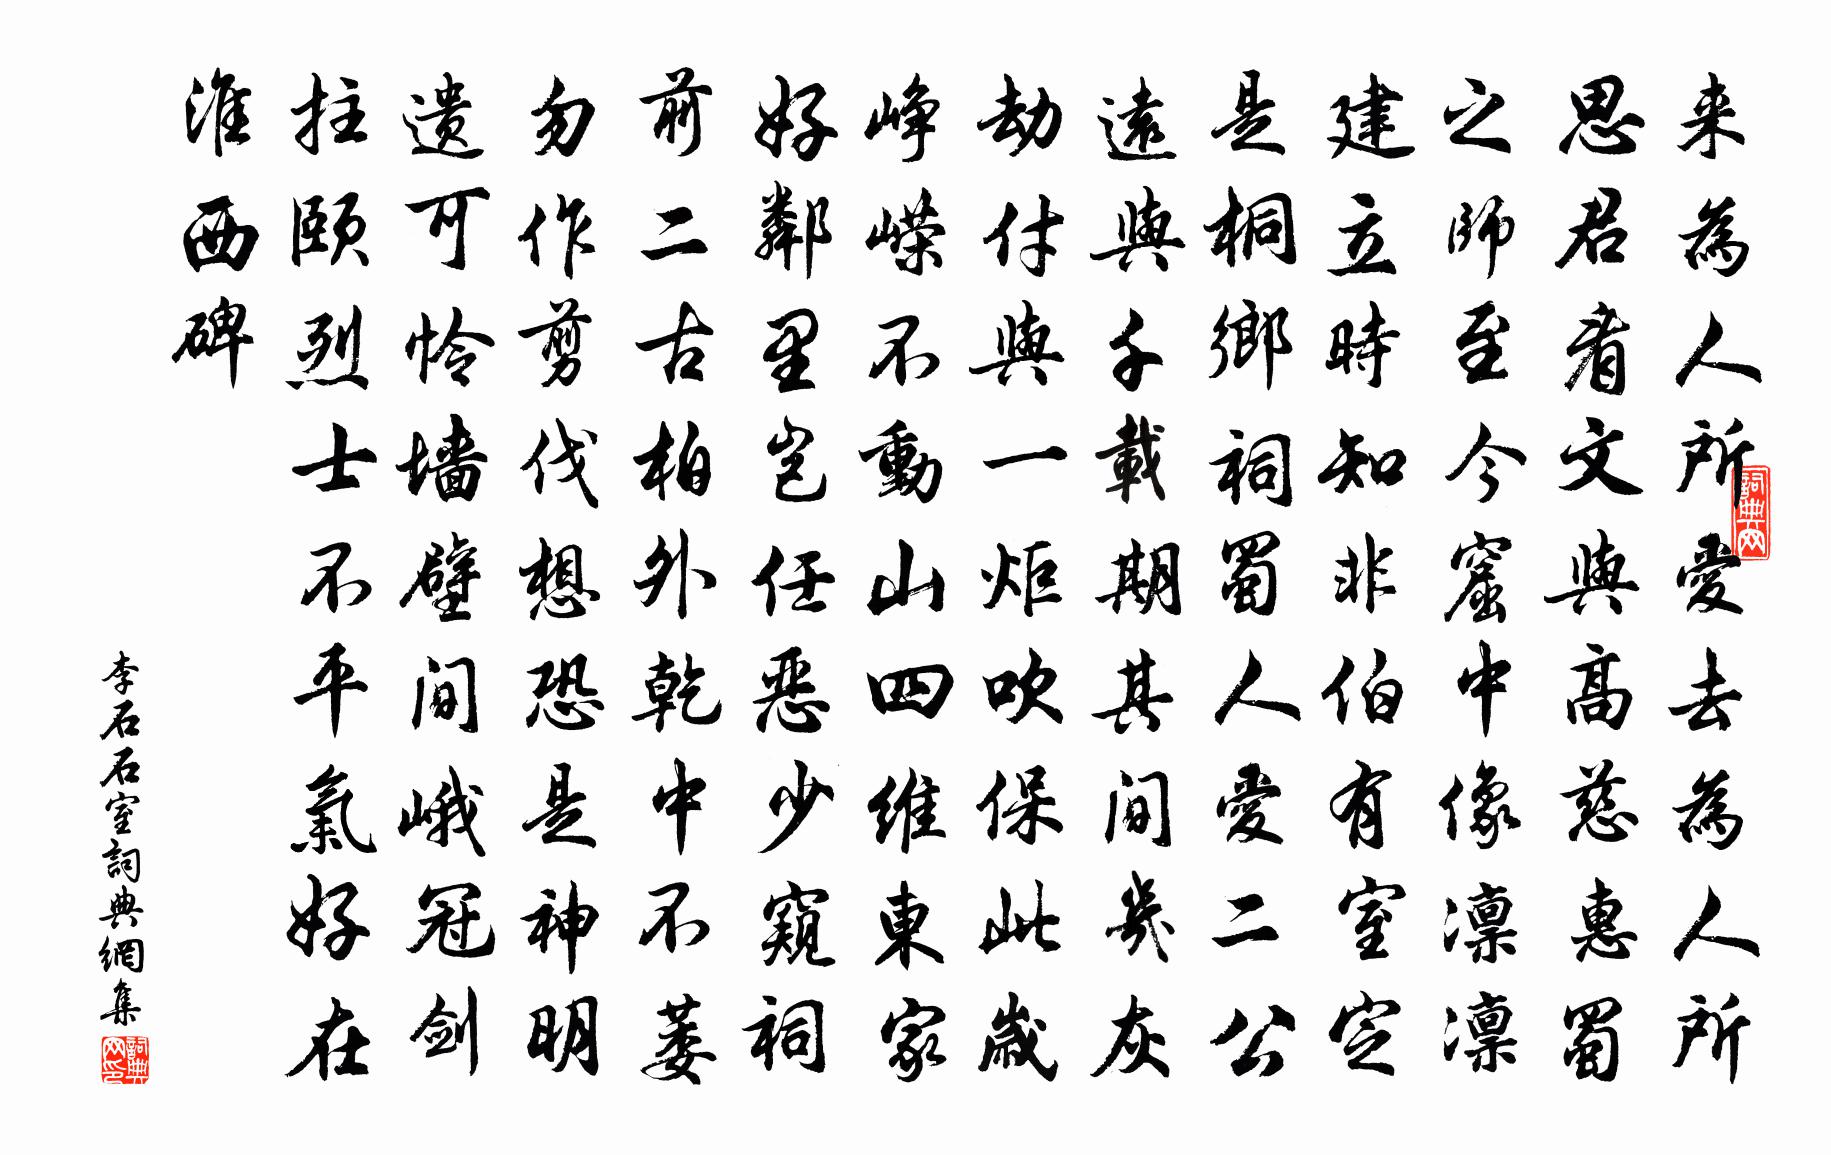 来為人所愛去為人所
思君看文與高慈惠蜀
之師至今窟中像凛凛
建立時知非伯有室定
是桐鄉祠蜀人愛二公
遠與千載期其间幾灰
劫付與一炬吹保此歲
峥嵘不動山四維東家
好鄰里岂任惡少窺祠
前二古柏外乾中不萎
勿作剪伐想恐是神明
遗可怜墙壁间峨冠剑
拄颐烈士不平氣好在
淮西碑
李石石室詞典網集
詞典网
詞典网印